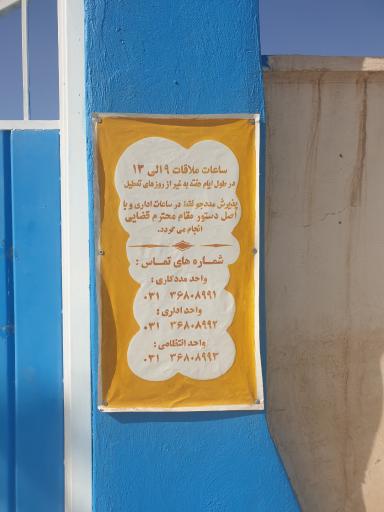 ساعات ملاقات ۹ الی ۱۳
در طول ایام هفته به غیر از روزهای تعطیل
پذیرش مددجو فقط در ساعات اداری و با
اصل دستور مقام محترم قضایی
انجام می گردد.
شماره های تماس :
واحد مددکاری :
۰۳۱ ۳۶۸۰۸۹۹۱
واحد اداری :
۰۳۱ ۳۶۸۰۸۹۹۲
واحد انتظامی :
۰۳۱ ۳۶۸۰۸۹۹۳